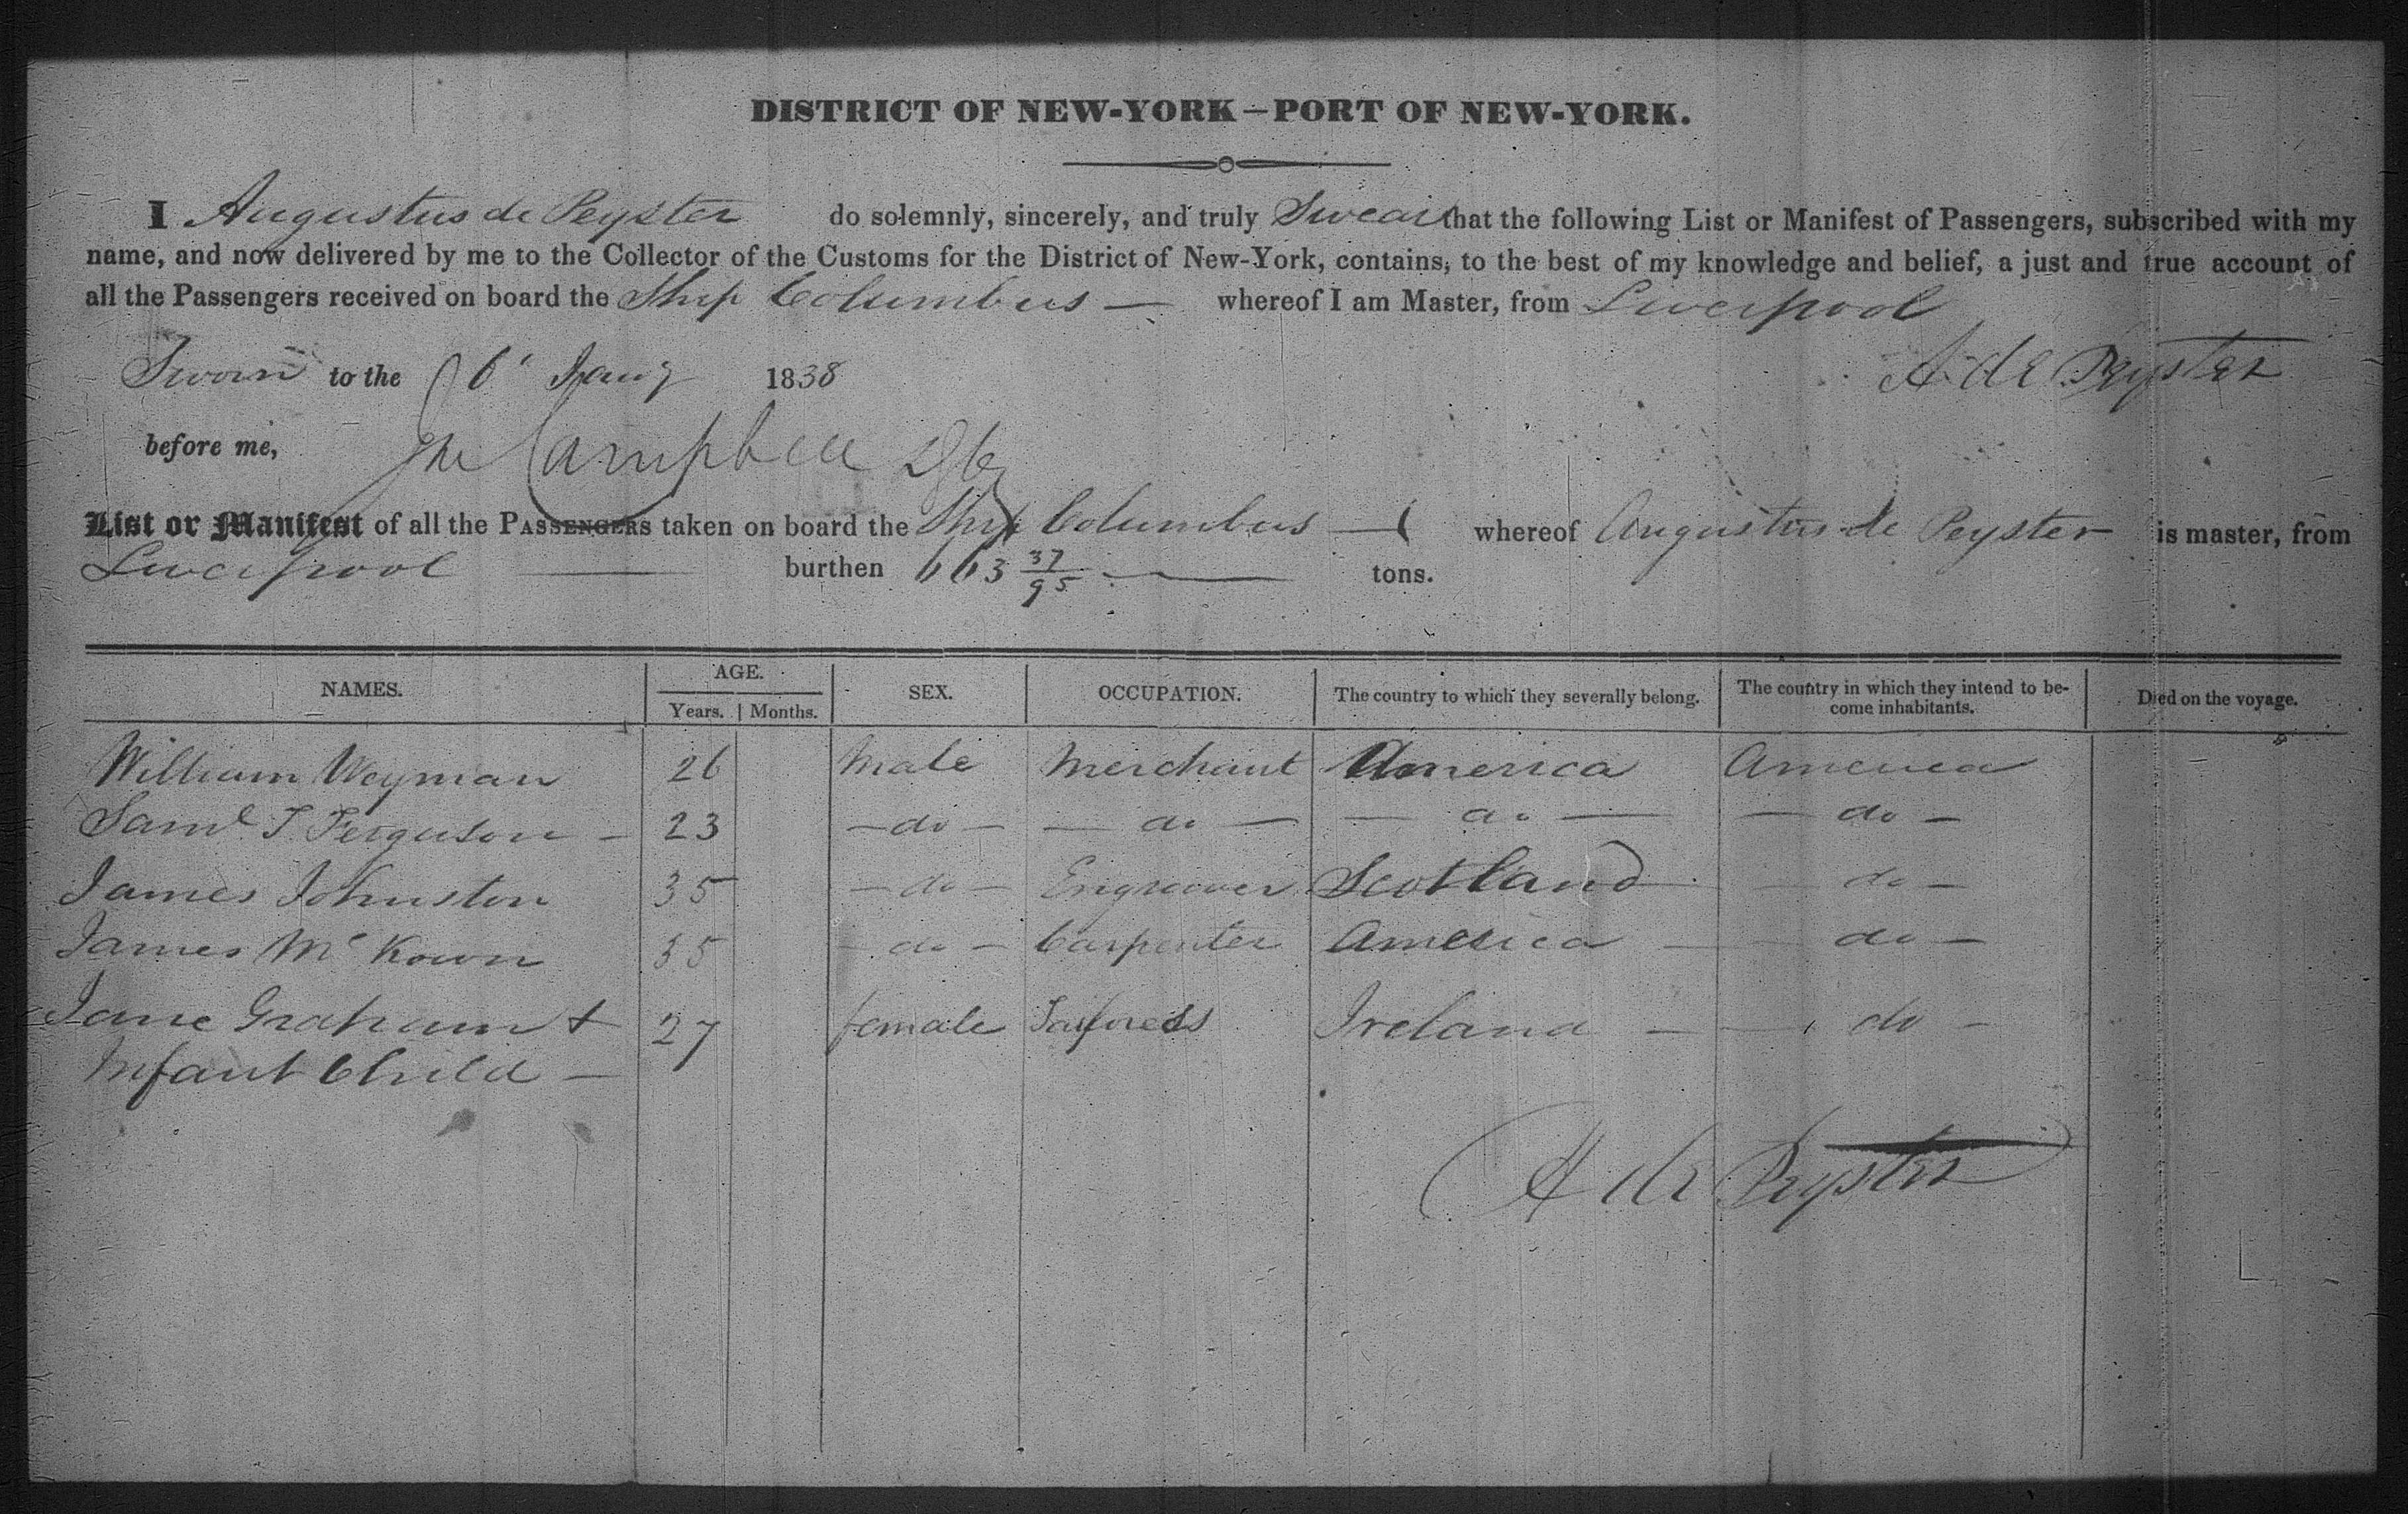 DISTRICT OF NEW-YORK—PORT OF NEW-YORK.
I Augustus de Peyster do solemnly, sincerely, and truly Swear that the following List or Manifest of Passengers, subscribed with my
name, and now delivered by me to the Collector of the Customs for the District of New-York, contains, to the best of my knowledge and belief, a just and true account of
all the Passengers received on board the Ship Columbus — whereof I am Master, from Liverpool
Sworn to the 6 Jany 1838 A de Peyster
before me, Campbell
List or Manifest of all the PASSENGERS taken on board the Ship Columbus — whereof Augustus de Peyster is master, from
Liverpool — burthen 663 37/95 — tons.
NAMES. AGE. SEX. OCCUPATION. The country to which they severally belong. The country in which they intend to be-
come inhabitants. Died on the voyage.
Years. Months.
William Weyman 26 Male Merchant America America
Saml T Ferguson — 23 — do — — do — — do — — do —
James Johnston 35 — do — Engraver Scotland — — do —
James Mc Kown 35 — do — Carpenter America — — do —
Jane Graham + 27 female Tailoress Ireland — — do —
Infant Child —
A de Peyster